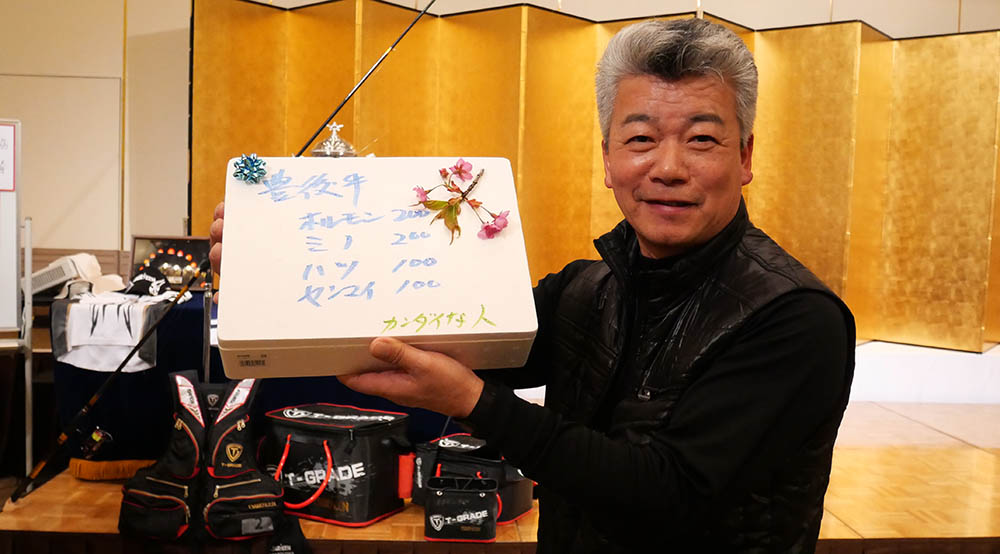 豊後牛
ホルモン 200
ミノ 200
ハツ 100
センマイ 100
カンダイな人
T-GRADE
T-GRADE
T-GRADE
2